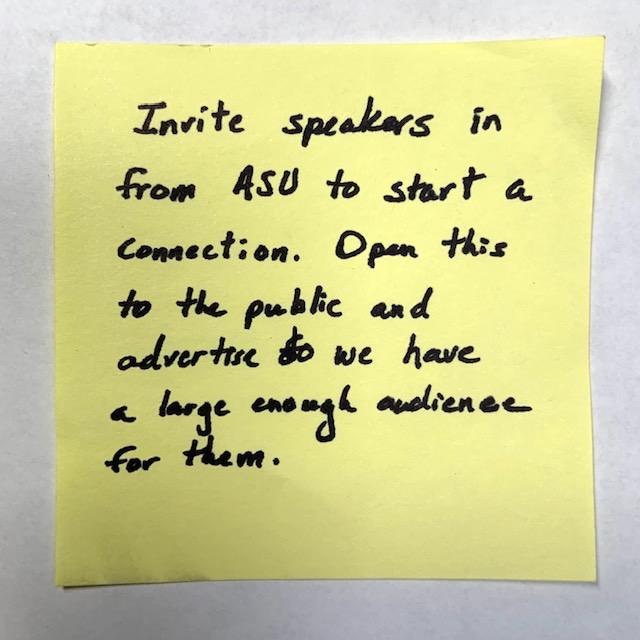 Invite speakers in
from ASU to start a
connection. Open this
to the public and
advertise so we have
a large enough audience
for them.